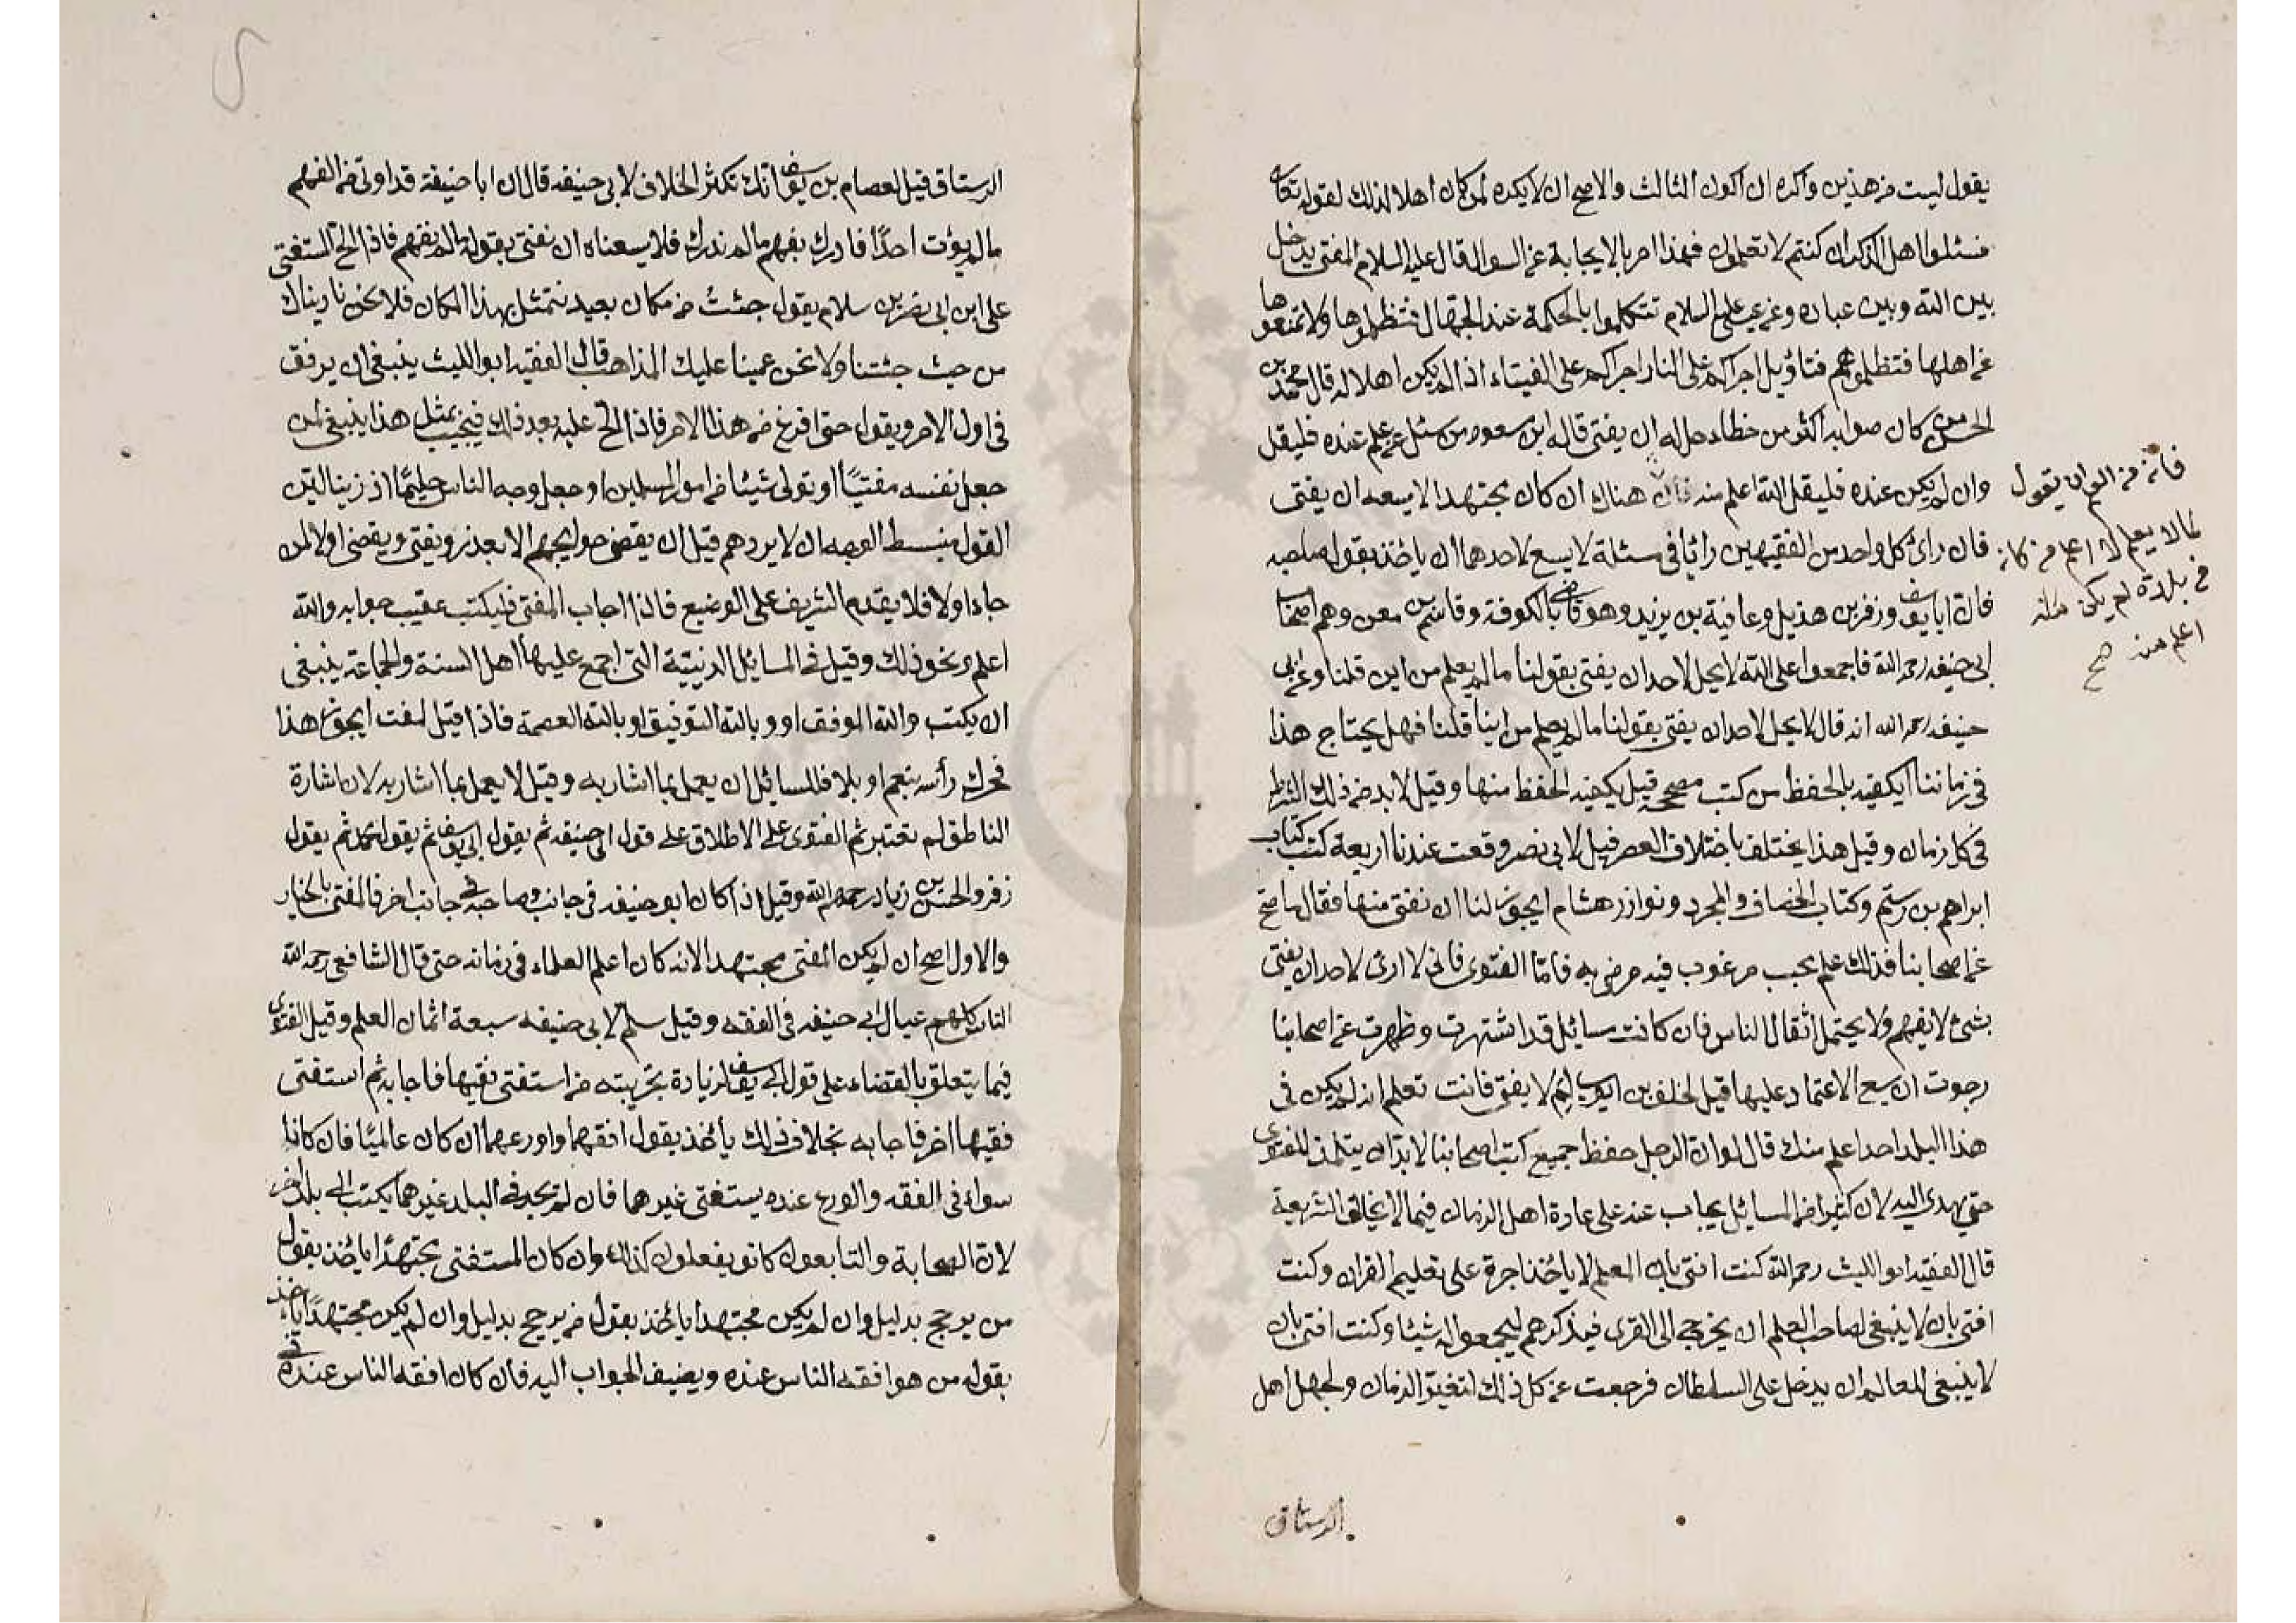 يقول ليست من هذين واكره ان اكون الثالث والاصح ان لا يكره لمن كان اهلا لذلك لقوله تعالى
فسئلوا اهل الذكر ان كنتم لا تعلمون فهذا امر بالاجابة عن السوال قال عليه السلام المفتى يدخل
بين الله وبين عباده وعن عيسى عليه السلام تتكلموا بالحكمة عند الجهال فتظلموها ولا تمنعوها
عن اهلها فتظلموهم فتاويل اجراكم على النار اجراكم على الفيتاء اذا لم يكن اهلا له قال محمد بن
الحسن من كان صوابه اكثر من خطاءه حل له ان يفتى قاله ابن مسعود من سئل عن علم عنده فليقل
وان لم يكن عنده فليقل الله اعلم منه هناك ان كان مجتهدا لا يسعه ان يفتى
فان رائ كل واحد من الفقيهين رائا فى مسئلة لا يسع لاحدهما ان ياخذ بقول صاحبه
فان ابا يوسف وزفر بن هذيل وعافية بن يزيد وهو قاضى بالكوفة وقاسم بن معن وهم اصحاب
ابى حنيفه رحمه الله فاجمعوا على انه لا يحل لاحد ان يفتى بقولنا ما لم يعلم من اين قلنا وعن ابى
حنيفه رحمه الله انه قال لا يحل لاحد ان يفتى بقولنا ما لم يعلم من اين قلنا فهل يحتاج هذا
فى زماننا ايكفيه بالحفظ من كتب مصححة قيل يكفيه الحفظ منها وقيل لا بد من ذلك الشرط
فى كل زمان وقيل هذا يختلف باختلاف العصر قيل لابى نصر وقعت عندنا اربعة كتب كتاب
ابراهيم بن رستم وكتاب الخصاف والمجرد ونوادر هشام ايجوز لنا ان نفتى منها فقال ما صح
عن اصحابنا فذلك علم محبب مرغوب فيه مرضى به فامّا الفتوى فانى لا ارى لاحد ان يفتى
بشئ لا يفهم ولا يحتمل اثقال الناس فان كانت مسائل قد اشتهرت وظهرت عن اصحابنا
رجوت ان يسع الاعتماد عليها قيل لخلف بن ايوب لم لا يفتى فانت تعلم انه لم يكن فى
هذا البلد احد اعلم منك قال لو ان الرجل حفظ جميع كتب اصحابنا لا بد ان يتلمذ للفتوى
حتى يهدى اليه لان كثيرا من المسائل يجاب عنه على عادة اهل الزمان فيما لا يخالف الشريعة
قال الفقيه ابو الليث رحمه الله كنت افتى بان المعلم لا ياخذ اجرة على تعليم القران وكنت
افتى بان لا ينبغى لصاحب العلم ان يخرج الى القرى فيذكرهم ليجمعوا له شيئا وكنت افتى بان
لا ينبغى للعالم ان يدخل على السلطان فرجعت عن كل ذلك لتغير الزمان ولجهل اهل
الرستاق
فانه من الوان يقول
لما لا يعلم لا اعلم من كان
فى بلدة لم يكن هناك
اعلم منه صح
الرستاق قيل لعصام بن يوسف انك تكثر الخلاف لابى حنيفه قال ان ابا حنيفة قد اوتى من الفهم
ما لم يؤت احدًا فادرك بفهم ما لم ندرك فلا يسعنا ان نفتى بقوله ما لم نفهم فاذا الحّ المستفتى
على ابن ابى نصر بن سلام يقول جئت من مكان بعيد نتمثل بهذا المكان فلا نحن ناديناك
من حيث جئتنا ولا نحن عمينا عليك المذاهب قال الفقيه ابو الليث ينبغى ان يرفق
فى اول الامر ويقول حتى افرغ من هذا الامر فاذا الحّ عليه بعد ذلك فيجيب بمثل هذا ينبغى لمن
جعل نفسه مفتيًا او تولى شيئا من امور المسلمين او جعل وجه الناس حليمًا اذ زينا ليّن
القول منبسط الوجه ان لا يردهم قبل ان يقضى حوايجهم الا بعذر ويفتى ويقضى اولا لمن
جاء اولا فلا يقدم الشريف على الوضيع فاذا اجاب المفتى فليكتب عقيب جوابه والله
اعلم ونحو ذلك وقيل فى المسائل الدينيّة التى اجمع عليها اهل السنة والجماعة ينبغى
ان يكتب والله الموفق او وبالله التوفيق او بالله العصمة فاذا قيل لمفت ايجوز هذا
فحرك رأسه بنعم او بلا فللسائل ان يعمل بما اشار به وقيل لا يعمل بما اشار به لان اشارة
الناطق لم تعتبر ثم الفتوى على الاطلاق على قول ابى حنيفه ثم بقول ابى يوسف ثم بقول محمد ثم بقول
زفر والحسن بن زياد رحمهم الله وقيل اذا كان ابو حنيفه فى جانب وصاحبه فى جانب اخر فالمفتى بالخيار
والاول اصح ان لم يكن المفتى مجتهدا لانه كان اعلم العلماء فى زمانه حتى قال الشافعى رحمه الله
الناس كلهم عيال ابى حنيفه فى الفقه وقيل سلم لابى حنيفه سبعة اثمان العلم وقيل الفتوى
فيما يتعلق بالقضاء على قول ابى يوسف لزيادة تجربته من استفتى فقيها فاجابه ثم استفتى
فقيها اخر فاجابه بخلاف ذلك يأخذ بقول افقههما واورعهما ان كان عالميًا فان كانا
سواء فى الفقه والورع عنده يستفتى غيرهما فان لم يجد فى البلد غيرهما يكتب الى بلد اخر
لان الصحابة والتابعون كانو يفعلون كذلك وان كان المستفتى مجتهدًا يأخذ بقول
من يرجح بدليل وان لم يكن مجتهدا يأخذ بقول من يرجح بدليل وان لم يكن مجتهدًا ياخذ
بقول من هو افقه الناس عنده ويضيف الجواب اليه فان كان افقه الناس عنده فى